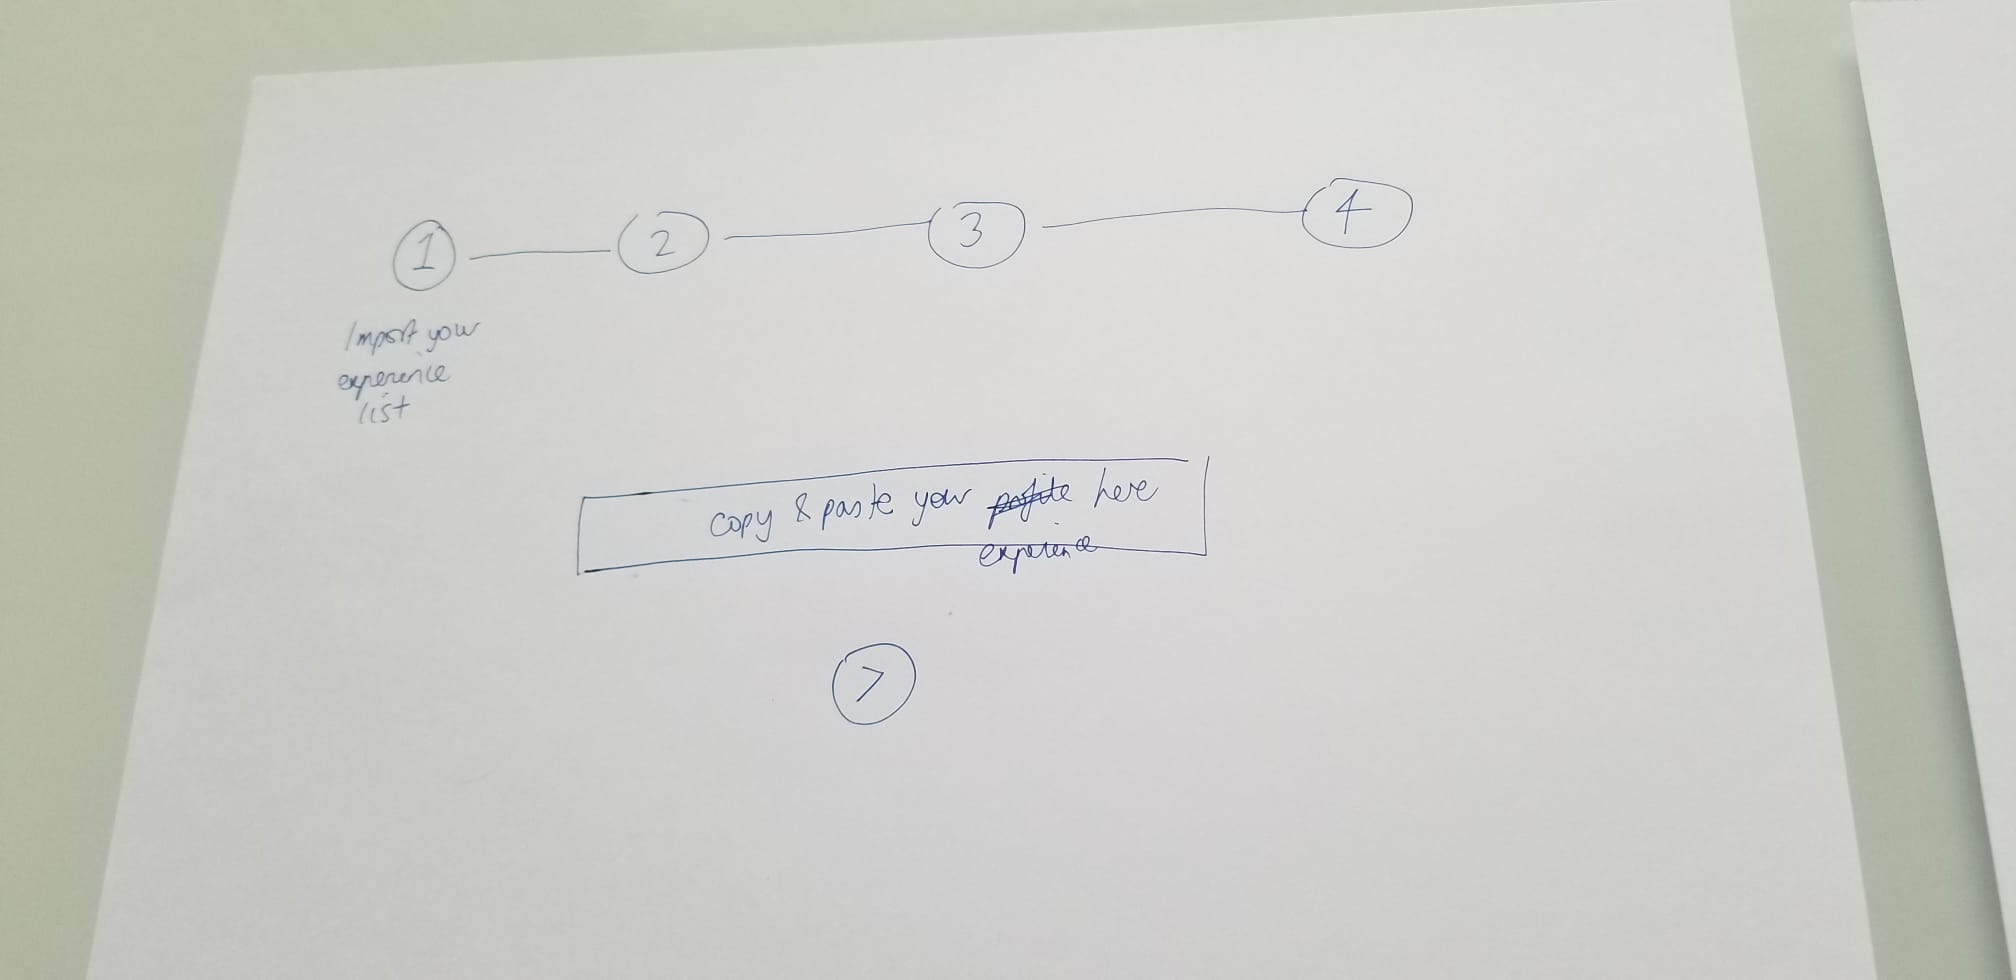 1 2 3 4
Import your
experience
list
copy & paste your profile here
experience
>